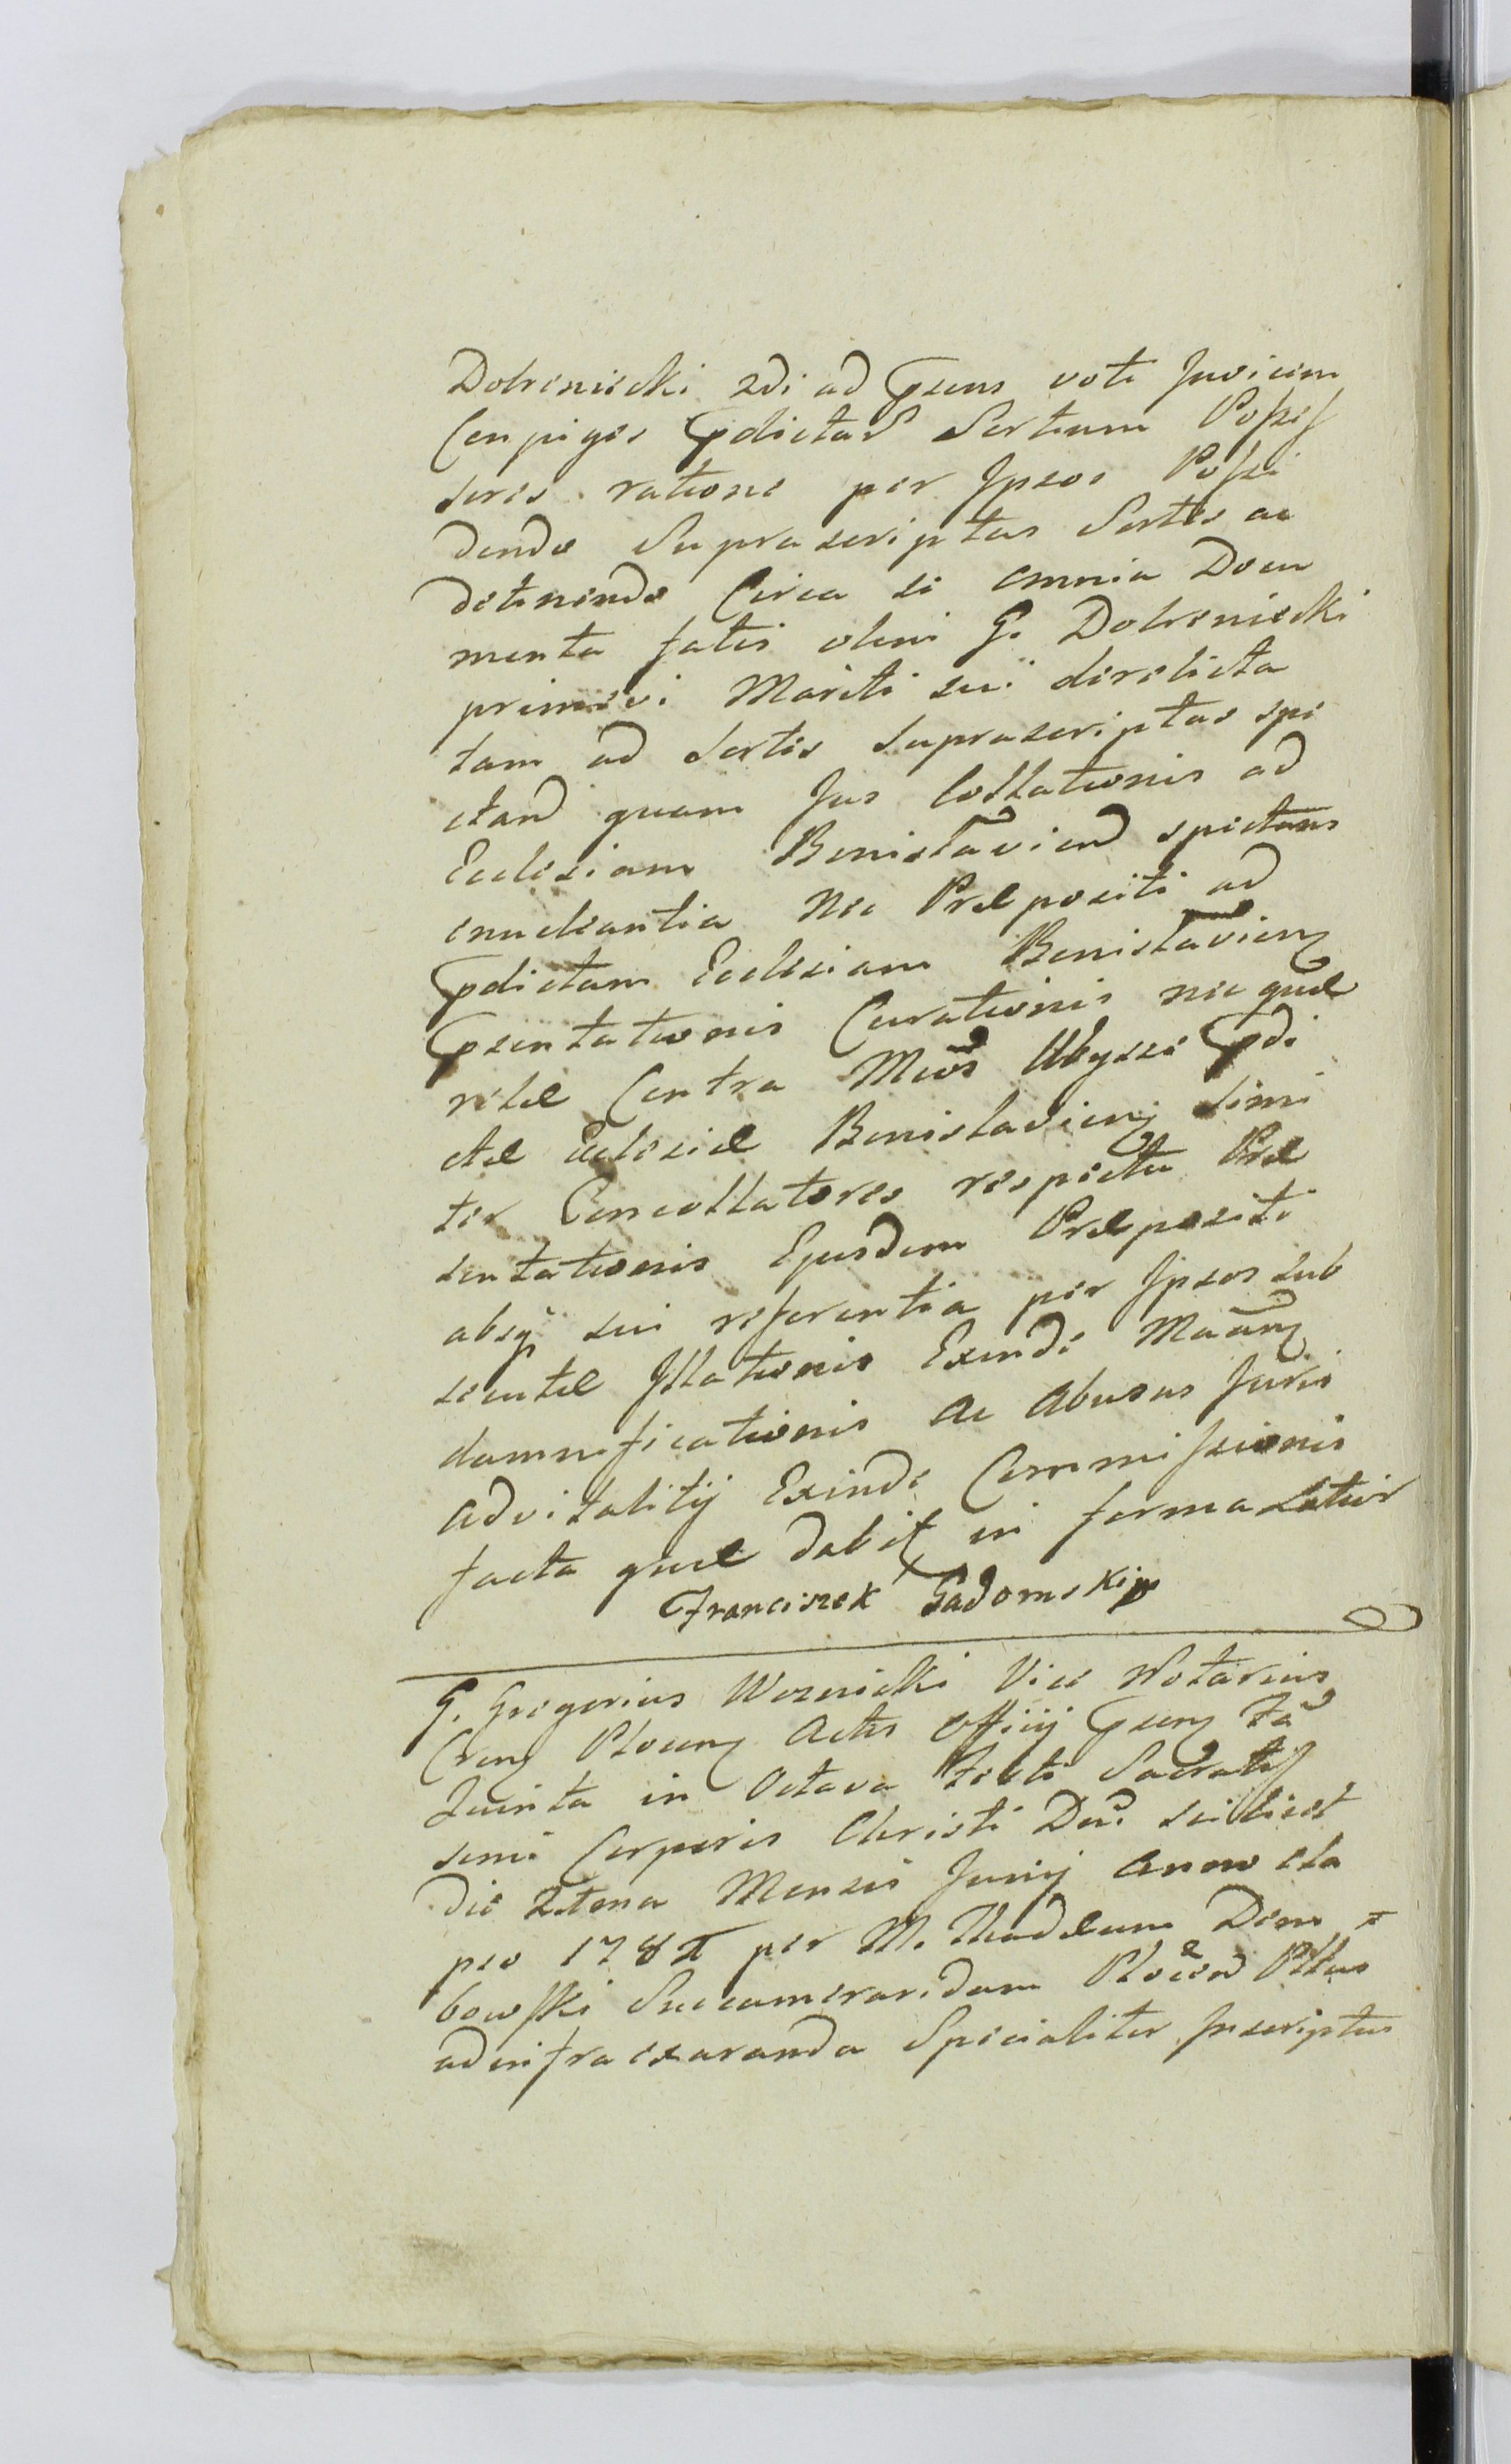 Dobrzniecki 2di ad Pzens voti Invicem
Conjuges Pdictar Sortium Possess
sores ratione per Ipsos Possi
dendo Suprascriptas Sortes ac
detinendo Circa se omnia Docu
menta fatis olim G. Dobrzniecki
primevi Mariti sui derelicta
tam ad Sortes Suprascriptas spe
ctand quam Jus Collationis ad
Ecclesiam Bonislavien spectans
enucleantia nec Præpositi ad
Pdictam Ecclesiam Bonislavien
Psentationis Curationis nec quere
relæ Contra Mcos Abysse Pdi
ctæ Ecclesiæ Bonislavien simi
ter Concollatores respectu Præ
sentationis Ejusdem Præpositi
absq sui referentia per Ipsos sub
secutæ Illationis Exinde Maan
damnificationis Ac Abusus Juris
Advitalitij Exinde Commissionis
facta quæ dabit in forma Latior
Franciszek Gadomski
G. Gregorius Woznicki Vice Notarius
Cren Plocen Actis Officij Psen Fa
Quinta in Octava Festi Sacratiss
simi Corporis Christi Dni scilicet
die Mensis Junij Anno ela
pso per M. Thadæum Dem =
bowski Succameraridam Plocen Pttus
ad infra exaranda Specialiter Inscriptus